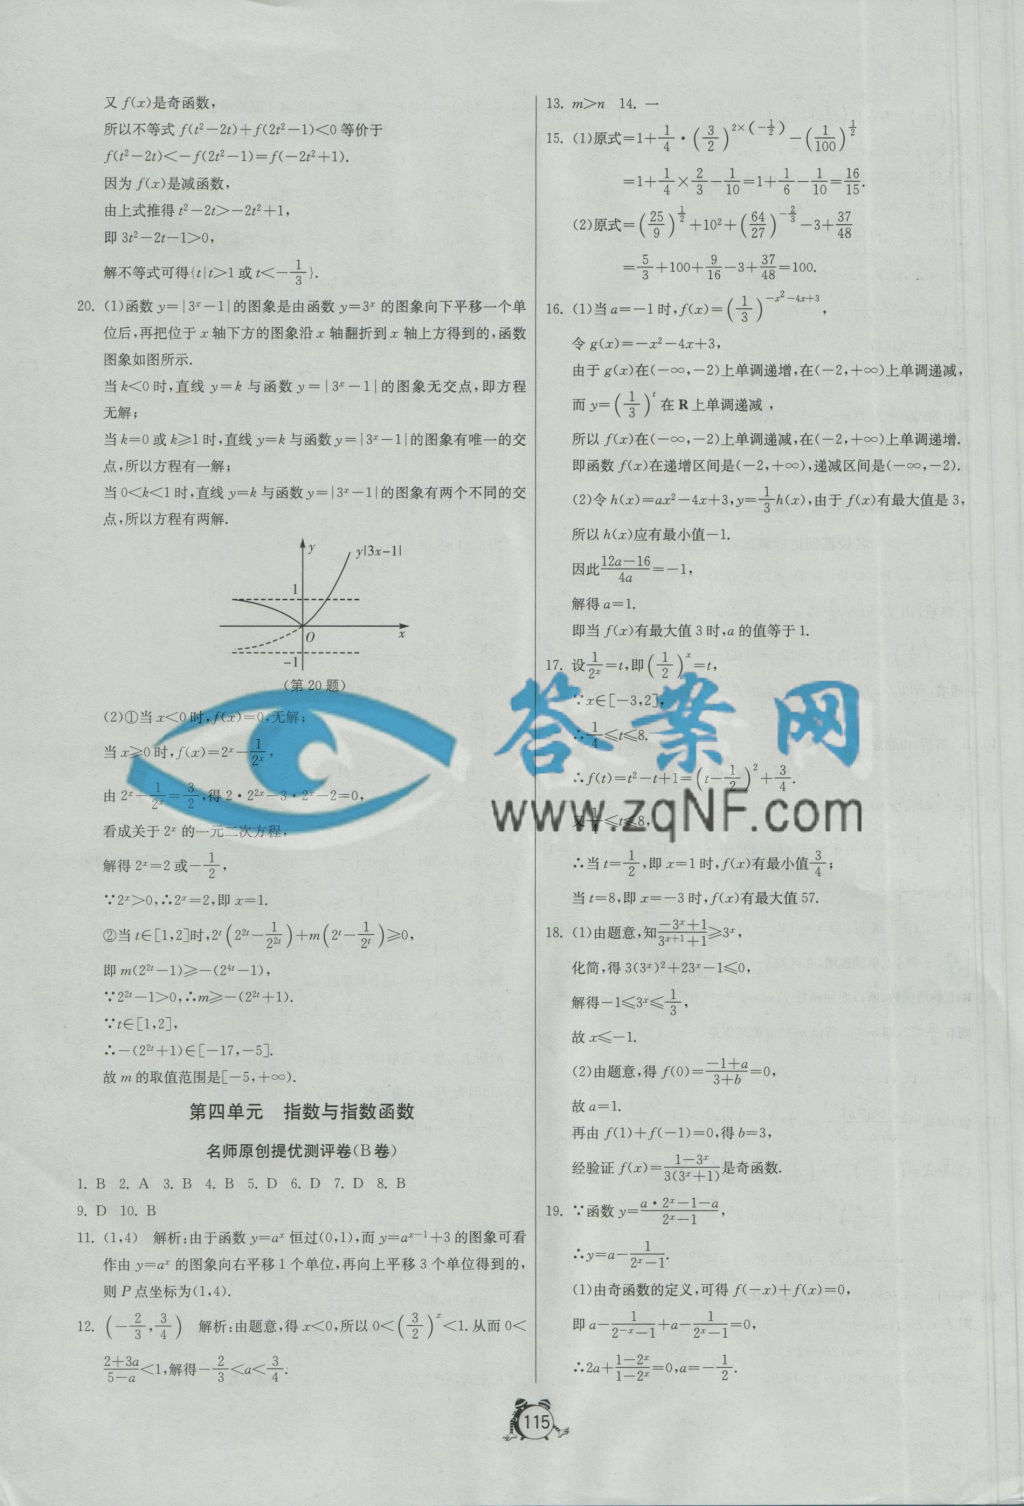 又 f(x)是奇函数,
所以不等式 f(t²－2t)＋f(2t²－1)＜0 等价于
f(t²－2t)＜－f(2t²－1)＝f(－2t²＋1).
因为 f(x)是减函数,
由上式推得 t²－2t＞－2t²＋1,
即 3t²－2t－1＞0,
解不等式可得{t|t＞1 或 t＜－1/3}.
20. (1)函数 y＝|3ˣ－1|的图象是由函数 y＝3ˣ 的图象向下平移一个单
位后,再把位于 x 轴下方的图象沿 x 轴翻折到 x 轴上方得到的,函数
图象如图所示.
当 k＜0 时,直线 y＝k 与函数 y＝|3ˣ－1|的图象无交点,即方程
无解;
当 k＝0 或 k⩾1 时,直线 y＝k 与函数 y＝|3ˣ－1|的图象有唯一的交
点,所以方程有一解;
当 0＜k＜1 时,直线 y＝k 与函数 y＝|3ˣ－1|的图象有两个不同的交
点,所以方程有两解.
y
y|3x－1|
1
O
x
－1
(第 20 题)
(2)①当 x＜0 时,f(x)＝0,无解;
当 x⩾0 时,f(x)＝2ˣ－1/2ˣ,
由 2ˣ－1/2ˣ＝3/2,得 2·2²ˣ－3·2ˣ－2＝0,
看成关于 2ˣ 的一元二次方程,
解得 2ˣ＝2 或－1/2,
∵2ˣ＞0,∴2ˣ＝2,即 x＝1.
②当 t∈[1,2]时,2ᵗ(2²ᵗ－1/2²ᵗ)＋m(2ᵗ－1/2ᵗ)⩾0,
即 m(2²ᵗ－1)⩾－(2⁴ᵗ－1),
∵2²ᵗ－1＞0,∴m⩾－(2²ᵗ＋1).
∵t∈[1,2],
∴－(2²ᵗ＋1)∈[－17,－5].
故 m 的取值范围是[－5,＋∞).
第四单元　指数与指数函数
名师原创提优测评卷(B 卷)
1. B　2. A　3. B　4. B　5. D　6. D　7. D　8. B
9. D　10. B
11. (1,4)　解析:由于函数 y＝aˣ 恒过(0,1),而 y＝aˣ⁻¹＋3 的图象可看
作由 y＝aˣ 的图象向右平移 1 个单位,再向上平移 3 个单位得到的,
则 P 点坐标为(1,4).
12. (－2/3,3/4)　解析:由题意,得 x＜0,所以 0＜(3/2)ˣ＜1. 从而 0＜
(2＋3a)/(5－a)＜1,解得－2/3＜a＜3/4.
13. m＞n　14. 一
15. (1)原式＝1＋1/4·(3/2)^(2×(－1/2))－(1/100)^(1/2)
＝1＋1/4×2/3－1/10＝1＋1/6－1/10＝16/15.
(2)原式＝(25/9)^(1/2)＋10²＋(64/27)^(－2/3)－3＋37/48
＝5/3＋100＋9/16－3＋37/48＝100.
16. (1)当 a＝－1 时,f(x)＝(1/3)^(－x²－4x＋3),
令 g(x)＝－x²－4x＋3,
由于 g(x)在(－∞,－2)上单调递增,在(－2,＋∞)上单调递减,
而 y＝(1/3)ᵗ 在 R 上单调递减,
所以 f(x)在(－∞,－2)上单调递减,在(－2,＋∞)上单调递增.
即函数 f(x)在递增区间是(－2,＋∞),递减区间是(－∞,－2).
(2)令 h(x)＝ax²－4x＋3,y＝1/3h(x),由于 f(x)有最大值是 3,
所以 h(x)应有最小值－1.
因此(12a－16)/4a＝－1,
解得 a＝1.
即当 f(x)有最大值 3 时,a 的值等于 1.
17. 设1/2ˣ＝t,即(1/2)ˣ＝t,
∵x∈[－3,2],
∴1/4⩽t⩽8.
∴f(t)＝t²－t＋1＝(t－1/2)²＋3/4.
又1/4⩽t⩽8,
∴当 t＝1/2,即 x＝1 时,f(x)有最小值3/4;
当 t＝8,即 x＝－3 时,f(x)有最大值 57.
18. (1)由题意,知(－3ˣ＋1)/(3ˣ⁺¹＋1)⩾3ˣ,
化简,得 3(3ˣ)²＋23ˣ－1⩽0,
解得－1⩽3ˣ⩽1/3,
故 x⩽－1.
(2)由题意,得 f(0)＝(－1＋a)/(3＋b)＝0,
故 a＝1.
再由 f(1)＋f(－1)＝0,得 b＝3,
经验证 f(x)＝(1－3ˣ)/(3(3ˣ＋1))是奇函数.
19. ∵函数 y＝(a·2ˣ－1－a)/(2ˣ－1),
∴y＝a－1/(2ˣ－1).
(1)由奇函数的定义,可得 f(－x)＋f(x)＝0,
即 a－1/(2⁻ˣ－1)＋a－1/(2ˣ－1)＝0,
∴2a＋(1－2ˣ)/(1－2ˣ)＝0,a＝－1/2.
答案网
www.zqNF.com
115